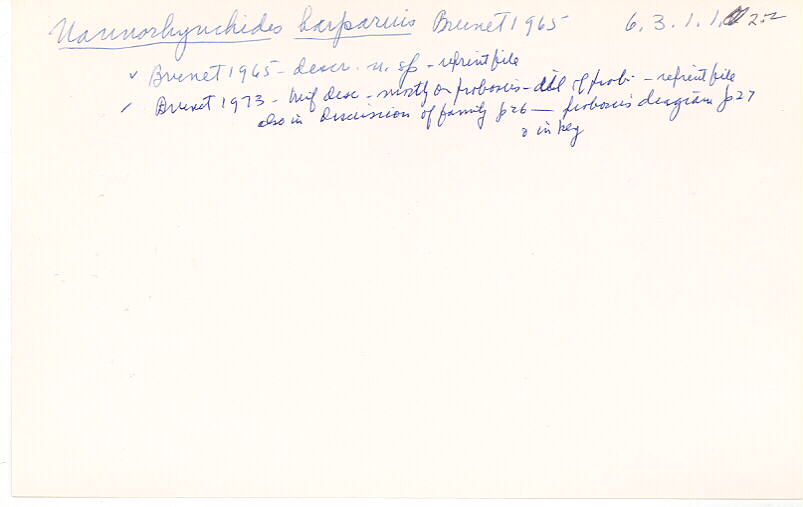 Nannorhynchides harparius Brunet 1965 6.3.1.1. 2.2
✓ Brunet 1965 - descr. n. sp - reprint file
✓ Brunet 1973 - brief desc - mostly on proboscis - of prob. - reprint file
also in Discussion of family p26 — proboscis diagram p27
& in key